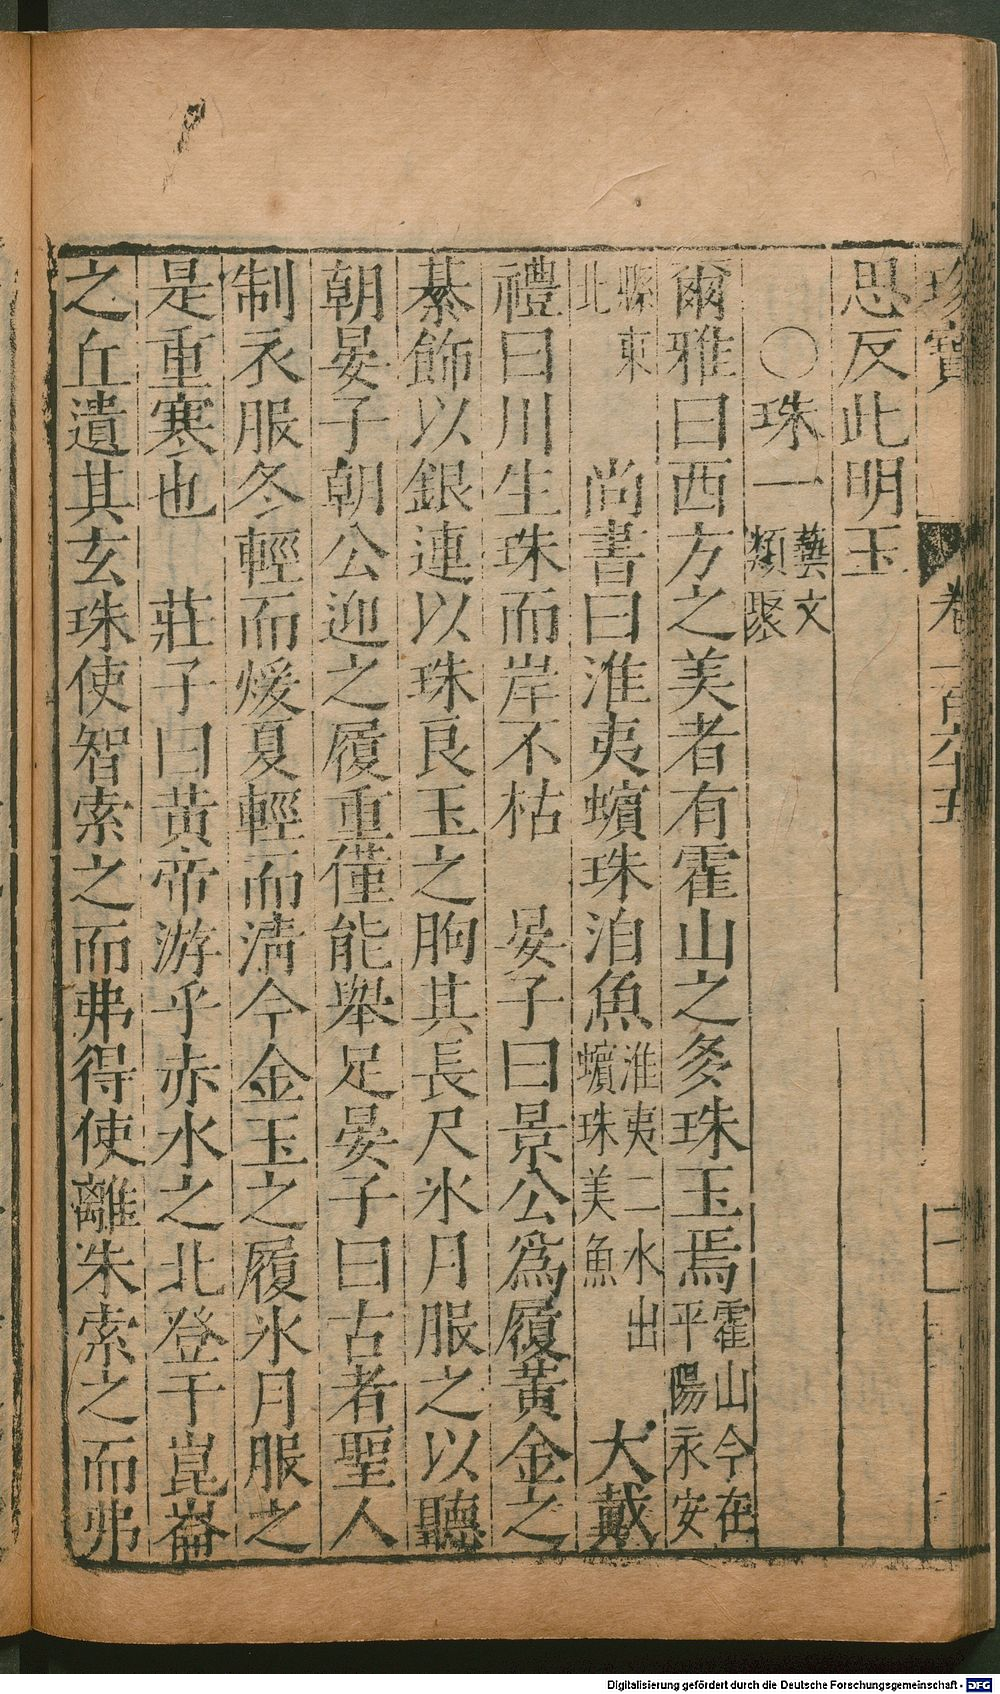 珍寶 卷一百六十五
思反此明玉
○珠一 藝文類聚
爾雅曰西方之美者有霍山之多珠玉焉 霍山今在平陽永安
縣東北 尚書曰淮夷蠙珠洎魚 淮夷二水出蠙珠美魚 大戴
禮曰川生珠而岸不枯 晏子曰景公爲履黃金之
綦飾以銀連以珠良玉之胊其長尺氷月服之以聽
朝晏子朝公迎之履重僅能舉足晏子曰古者聖人
制衣服冬輕而煖夏輕而清今金玉之履氷月服之
是重寒也 莊子曰黄帝游乎赤水之北登于崑崙
之丘遺其玄珠使智索之而弗得使離朱索之而弗
Digitalisierung gefördert durch die Deutsche Forschungsgemeinschaft - DFG